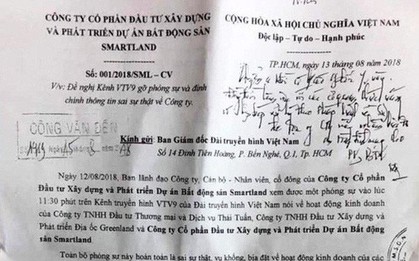 CÔNG TY CỔ PHẦN ĐẦU TƯ XÂY DỰNG
VÀ PHÁT TRIỂN DỰ ÁN BẤT ĐỘNG SẢN
SMARTLAND
CỘNG HÒA XÃ HỘI CHỦ NGHĨA VIỆT NAM
Độc lập – Tự do – Hạnh phúc
Số: 001/2018/SML – CV
TP.HCM, ngày 13 tháng 08 năm 2018
V/v: Đề nghị Kênh VTV9 gỡ phóng sự và định
chính thông tin sai sự thật về Công ty.
CÔNG VĂN ĐẾN
Kính gửi: Ban Giám đốc Đài truyền hình Việt Nam
Số 14 Đinh Tiên Hoàng, P. Bến Nghé, Q.1, Tp. HCM
Ngày 12/08/2018, Ban lãnh đạo Công ty, Cán bộ - Nhân viên, cổ đông của Công ty Cổ phần
Đầu tư Xây dựng và Phát triển Dự án Bất động sản Smartland xem được một phóng sự vào lúc
11:30 phút trên Kênh truyền hình VTV9 của Đài truyền hình Việt Nam nói về hoạt động kinh doanh
của Công ty TNHH Đầu tư Thương mại và Dịch vụ Thái Tuấn, Công ty TNHH Đầu tư Xây dựng và
Phát triển Địa ốc Greenland và Công ty Cổ phần Đầu tư Xây dựng và Phát triển Dự án Bất động
sản Smartland.
Toàn bộ phóng sự này hoàn toàn là sai sự thật, vu khống, bịa đặt về hoạt động kinh doanh của